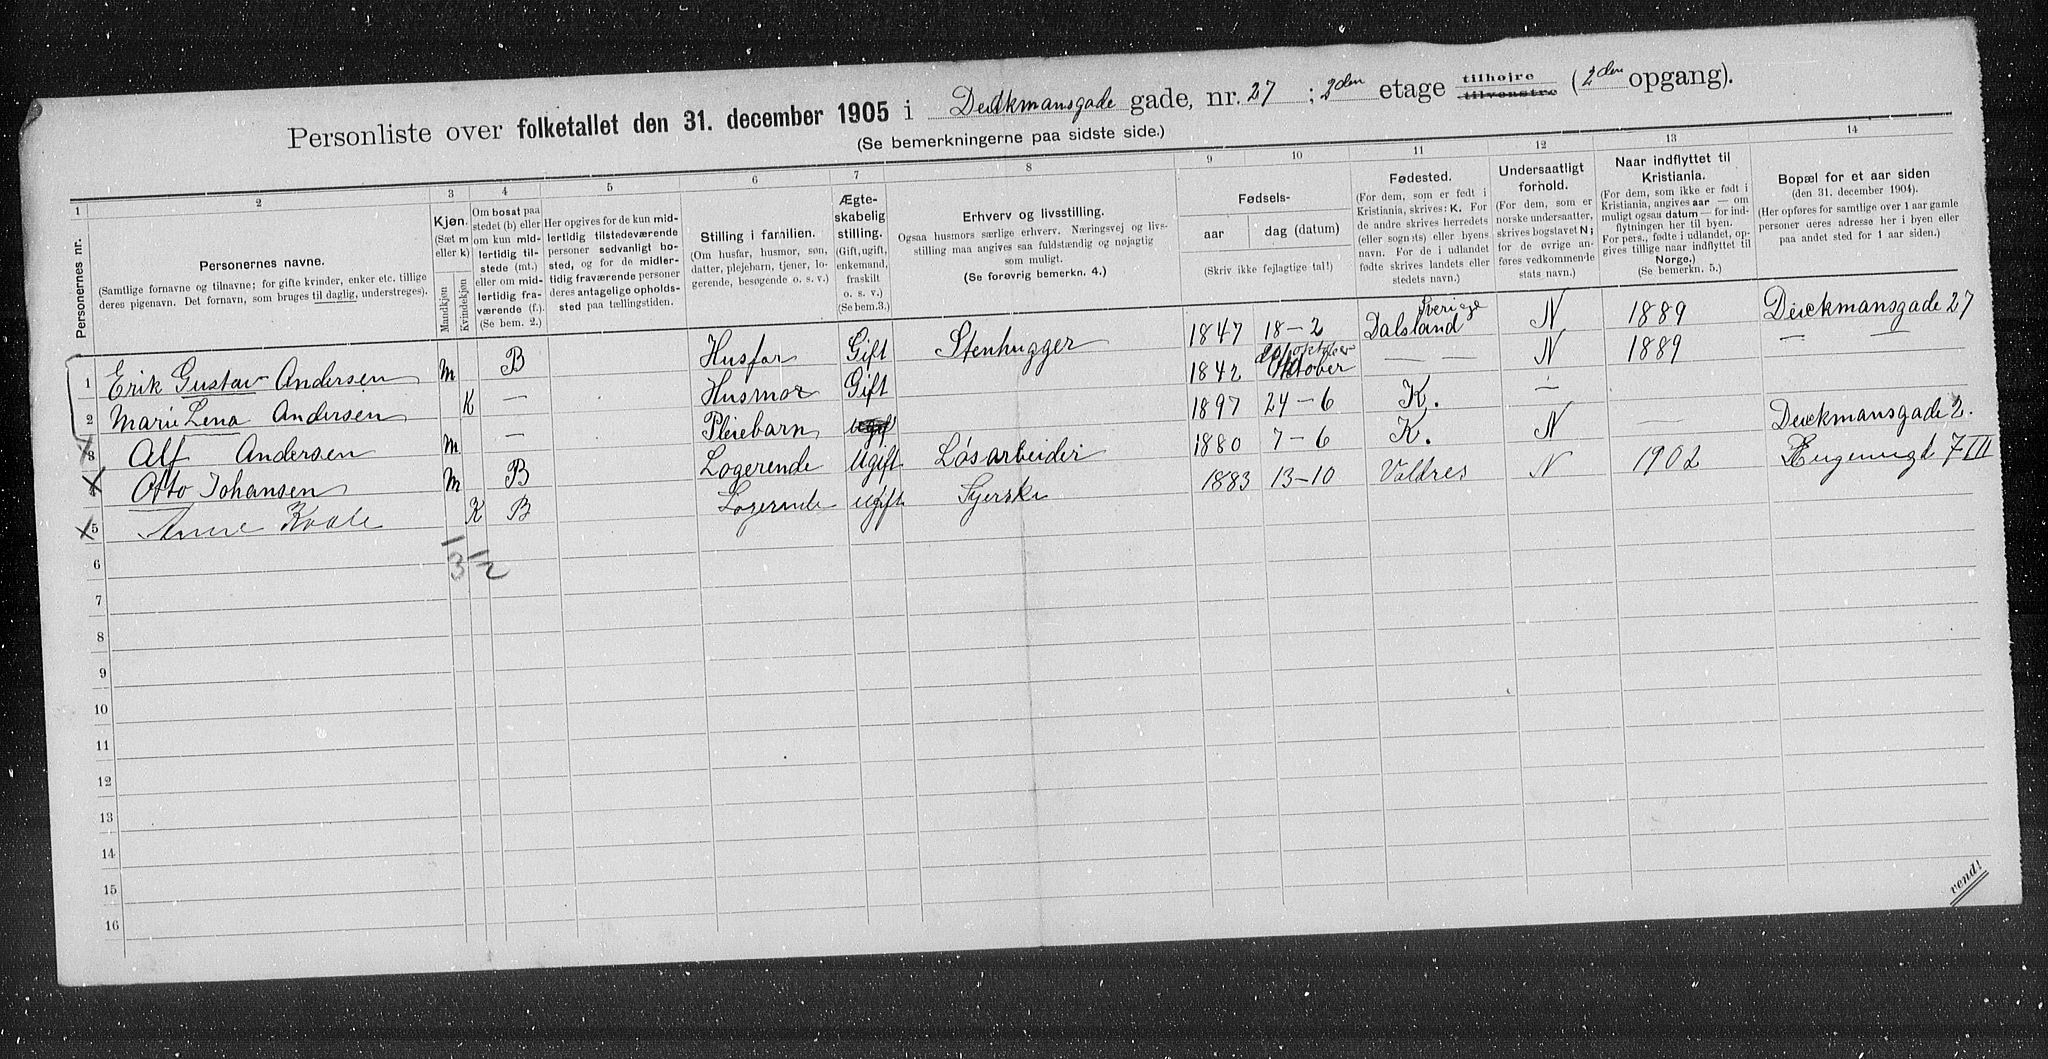 Personliste over folketallet den 31. december 1905 i Deichmansgade gade, nr. 27; 2den etage tilhøjre tilvenstre (2den opgang).
(Se bemerkningerne paa sidste side.)
1 2 3 4 5 6 7 8 9 10 11 12 13 14
Personernes nr.
Personernes navne.
(Samtlige fornavne og tilnavne; for gifte kvinder, enker etc. tillige deres pigenavn. Det fornavn, som bruges til daglig, understreges).
Kjøn.
(Sæt m eller k)
Mandkjøn
Kvindekjøn
Om bosat paa stedet (b) eller om kun midlertidig tilstede (mt.) eller om midlertidig fraværende (f.). (Se bem. 2.)
Her opgives for de kun midlertidig tilstedeværende personer sedvanligt bosted, og for de midlertidig fraværende personer deres antagelige opholdssted paa tællingstiden.
Stilling i familien.
(Om husfar, husmor, søn, datter, plejebarn, tjener, logerende, besøgende o. s. v.)
Ægteskabelig stilling.
(Gift, ugift, enkemand, fraskilt o. s. v.) (Se bem.3.)
Erhverv og livsstilling.
Ogsaa husmors særlige erhverv. Næringsvej og livsstilling maa angives saa fuldstændig og nøjagtig som muligt.
(Se forøvrig bemerkn. 4.)
Fødsels-
aar
dag (datum)
(Skriv ikke fejlagtige tal!)
Fødested.
(For dem, som er født i Kristiania, skrives: K. For de andre skrives herredets (eller sognets) eller byens navn. For de i udlandet fødte skrives landets eller stedets navn.)
Undersaatligt forhold.
(For dem, som er norske undersaatter, skrives bogstavet N; for de øvrige anføres vedkommende stats navn.)
Naar indflyttet til Kristiania.
(For dem, som ikke er født i Kristiania, angives aar — om muligt ogsaa datum — for indflytningen her til byen. For pers., fødte i udlandet, opgives tillige naar indflyttet til Norge.)
(Se bemerkn. 5.)
Bopæl for et aar siden
(den 31. december 1904).
(Her opføres for samtlige over 1 aar gamle personer deres adresse her i byen eller paa andet sted for 1 aar siden.)
1 Erik Gustav Andersen m B Husfar Gift Stenhugger 1847 18-2 Sverige Dalsland N 1889 Deickmansgade 27
2 Marie Lena Andersen K — Husmor Gift 1842 Oktober — — N 1889 — —
3 Alf Andersen m — Pleiebarn 1897 24-6 K. —
4 Otto Johansen m B Logerende Ugift Løsarbeider 1880 7-6 K. N Deickmansgade 2.
5 Anne Kvale K B Logerende ugift Syerske 1883 13-10 Valdres N 1902 Eugeniegt 7 III
1 1
3 2
6
7
8
9
10
11
12
13
14
15
16
vend!